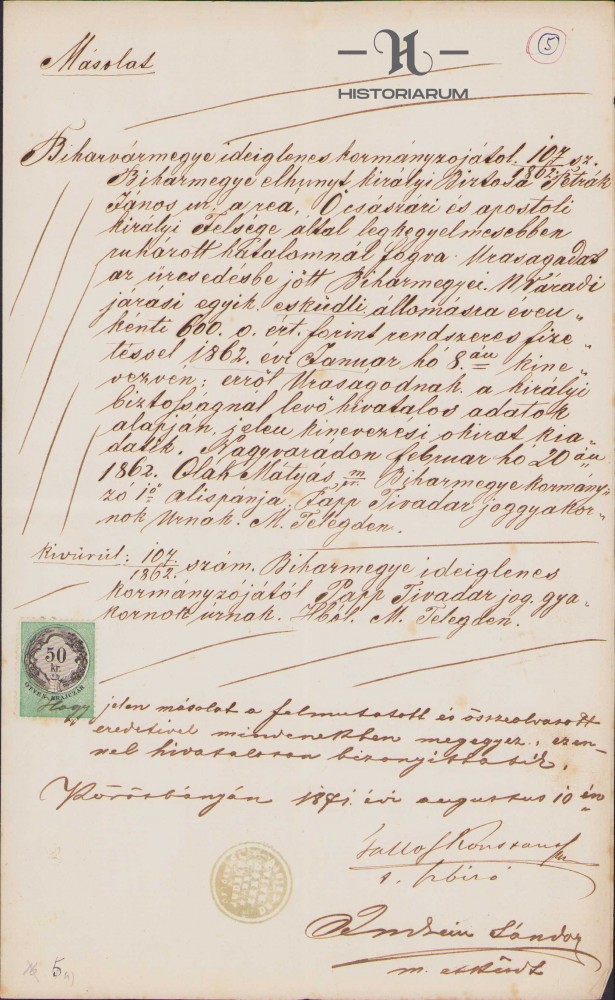 HISTORIARUM
5
Másolat
Biharvármegye ideiglenes kormányzojától. 107/1862 sz.
Biharmegye elhunyt királyi Biztosa Petrák
János ur, a rea, Ő császári és apostoli
királyi Felsége által legkegyelmesebben
ruházott hatalomnál fogva Uraságadat
az üresedésbe jött Biharmegyei M.Váradi
járási egyik esküdti állomásra éven„
kénti 600. o. ért. forint rendszeres fize„
téssel 1862. évi Januar hó 8.án kine„
vezvén; erről Uraságodnak a királyi
biztosságnál levő hivatalos adatok
alapján jelen kinevezési okirat kia„
datik. Nagyváradon februar ho 20án
1862. Olah Mátyás Biharmegye kormány„
zo 1ő alispánja, Papp Tivadar joggyakor„
nok Urnak. M. Telegden.
kivürül: 107/1862. szám. Biharmegye ideiglenes
kormányzójától Papp Tivadar jog. gya„
kornok úrnak. Hból. M. Telegden.
50
kr.
ÖTVEN KRAJCZÁR
Hogy jelen másolat a felmutatott és összeolvasott
eredetivel mindenekben megegyez, ezen„
nel hivatalosan bizonyíttatik.
Körösbányán 1871. évi augustus 10 én
s. szbíró
Sándor
m. esküdt
5